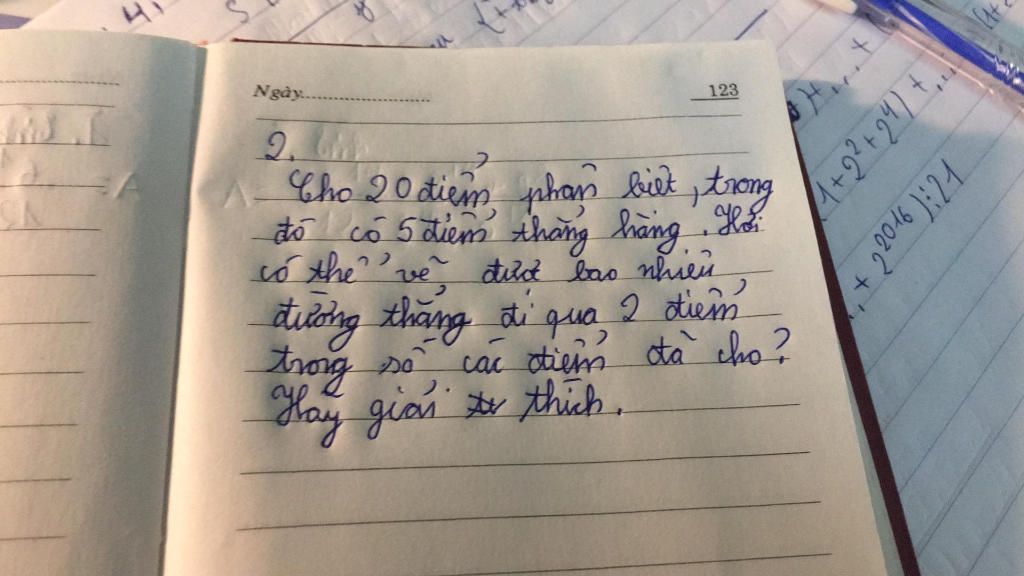 Ngày.............................. 123
2.
Cho 20 điểm phân biệt, trong
đó có 5 điểm thẳng hàng. Hỏi
có thể vẽ được bao nhiêu
đường thẳng đi qua 2 điểm
trong số các điểm đã cho?
Hãy giải thích.
1+2²+2⁴) + ...
... + 2²⁰¹⁶) : 21